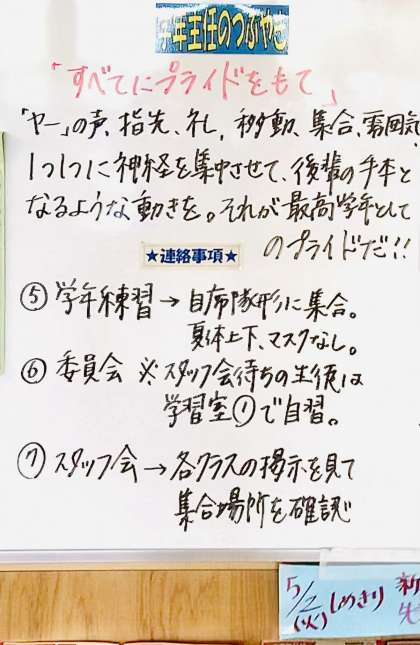 学年主任のつぶやき
「すべてにプライドをもて」
「ヤー」の声、指先、礼、移動、集合、雰囲気
1つ1つに神経を集中させて、後輩の手本と
なるような動きを。それが最高学年として
のプライドだ!!
★連絡事項★
⑤ 学年練習→自席隊形に集合。
夏体上下、マスクなし。
⑥ 委員会 ※スタッフ会待ちの生徒は
学習室①で自習。
⑦ スタッフ会→各クラスの掲示を見て
集合場所を確認
5/2(火)しめきり
新
先